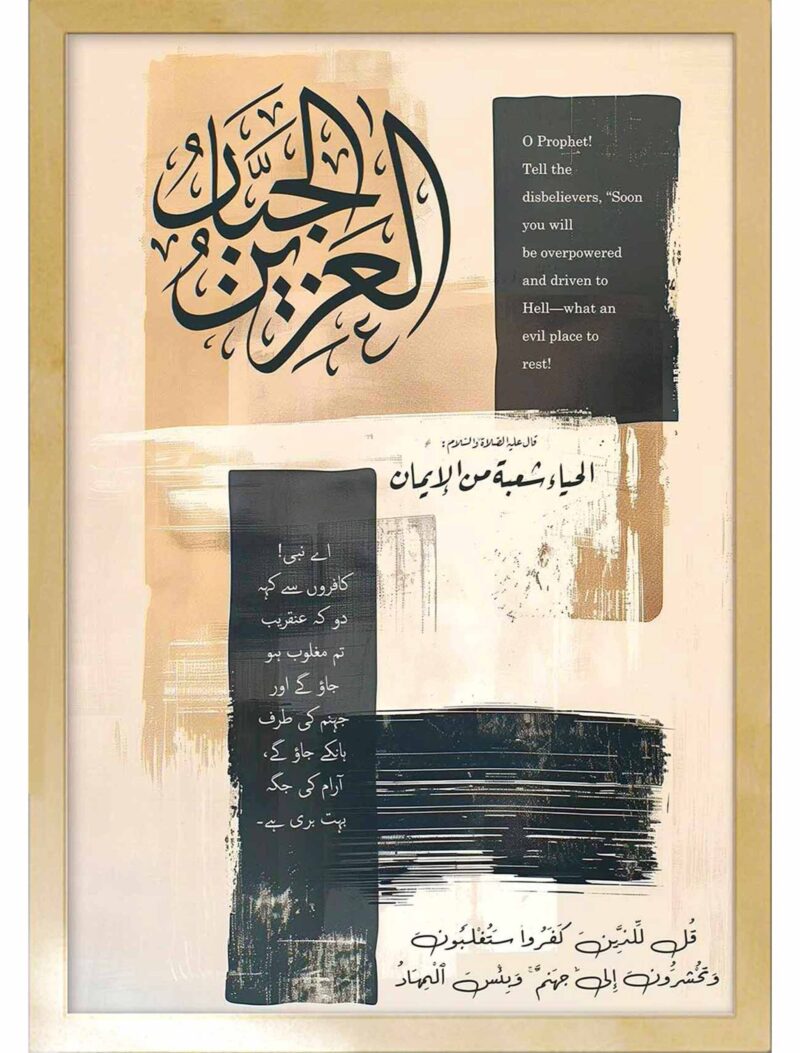 العزيز
الجبّار
O Prophet!
Tell the
disbelievers, “Soon
you will
be overpowered
and driven to
Hell—what an
evil place to
rest!
قال عليه الصلاة والسلام:
الحياء شعبة من الإيمان
اے نبی!
کافروں سے کہہ
دو کہ عنقریب
تم مغلوب ہو
جاؤ گے اور
جہنم کی طرف
ہانکے جاؤ گے،
آرام کی جگہ
بہت بری ہے۔
قُل لِّلَّذِينَ كَفَرُوا سَتُغْلَبُونَ
وَتُحْشَرُونَ إِلَىٰ جَهَنَّمَ ۚ وَبِئْسَ ٱلْمِهَادُ